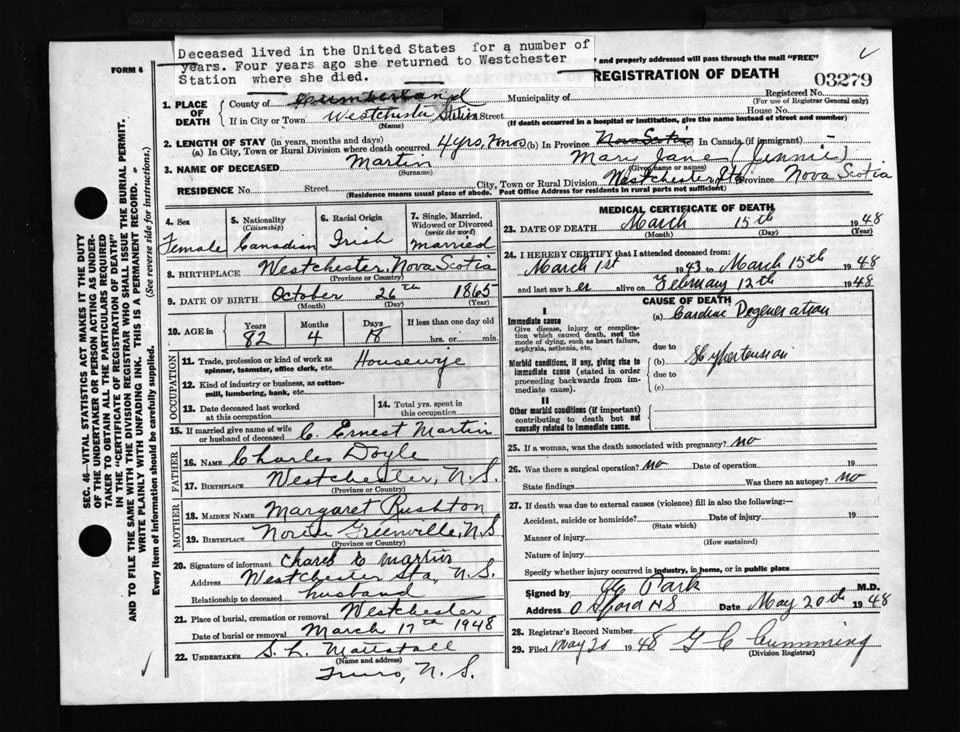 Deceased lived in the United States for a number of
years. Four years ago she returned to Westchester
Station where she died.
FORM 6
and properly addressed will pass through the mail "FREE"
REGISTRATION OF DEATH
03279
1. PLACE OF DEATH
County of Cumberland Municipality of
Registered No.
(For use of Registrar General only)
If in City or Town Westchester Station Street House No.
(Name) (If death occurred in a hospital or institution, give the name instead of street and number)
2. LENGTH OF STAY (in years, months and days)
(a) In City, Town or Rural Division where death occurred 4 yrs, 7 mos (b) In Province Nova Scotia In Canada (if immigrant)
3. NAME OF DECEASED Martin Mary Jane (Jennie)
(Surname) (Given name or names)
RESIDENCE No. Street City, Town or Rural Division Westchester Sta Province Nova Scotia
(Residence means usual place of abode. Post Office Address for residents in rural parts not sufficient)
4. Sex
Female
5. Nationality
(Citizenship)
Canadian
6. Racial Origin
Irish
7. Single, Married,
Widowed or Divorced
(write the word)
married
8. BIRTHPLACE Westchester, Nova Scotia
(Province or Country)
9. DATE OF BIRTH October 26th 1865
(Month) (Day) (Year)
10. AGE in
Years Months Days If less than one day old
82 4 18 hrs. or min.
OCCUPATION
11. Trade, profession or kind of work as
spinner, teamster, office clerk, etc. Housewife
12. Kind of industry or business, as cotton-
mill, lumbering, bank, etc.
13. Date deceased last worked
at this occupation
14. Total yrs. spent in
this occupation
15. If married give name of wife
or husband of deceased C. Ernest Martin
FATHER
16. NAME Charles Doyle
17. BIRTHPLACE Westchester, N.S.
(Province or Country)
MOTHER
18. MAIDEN NAME Margaret Rushton
19. BIRTHPLACE North Greenville, N.S
(Province or Country)
20. Signature of informant Charles E Martin
Address Westchester Sta, N.S.
Relationship to deceased husband
21. Place of burial, cremation or removal Westchester
Date of burial or removal March 17th 1948
22. UNDERTAKER S. L. Mattatall
(Name and address)
Truro, N.S.
MEDICAL CERTIFICATE OF DEATH
23. DATE OF DEATH March 15th 1948
(Month) (Day) (Year)
24. I HEREBY CERTIFY that I attended deceased from:
March 1st 1943 to March 15th 1948
and last saw her alive on February 12th 1948
CAUSE OF DEATH
I
Immediate cause
Give disease, injury or complica-
tion which caused death, not the
mode of dying, such as heart failure,
asphyxia, asthenia, etc.
(a) Cardiac Degeneration
due to
Morbid conditions, if any, giving rise to
immediate cause (stated in order
proceeding backwards from im-
mediate cause).
(b) Hypertension
due to
(c)
II
Other morbid conditions (if important)
contributing to death but not
causally related to immediate cause.
25. If a woman, was the death associated with pregnancy? no
26. Was there a surgical operation? no Date of operation 19
State findings Was there an autopsy? no
27. If death was due to external causes (violence) fill in also the following:—
Accident, suicide or homicide? Date of injury 19
(State which)
Manner of injury
(How sustained)
Nature of injury
Specify whether injury occurred in industry, in home, or in public place
Signed by Park M.D.
Address Oxford NS Date May 20th 1948
28. Registrar's Record Number
29. Filed May 20 1948 G C Cumming
(Division Registrar)
SEC. 46—VITAL STATISTICS ACT MAKES IT THE DUTY
OF THE UNDERTAKER OR PERSON ACTING AS UNDER-
TAKER TO OBTAIN ALL THE PARTICULARS REQUIRED
IN THE "CERTIFICATE OF REGISTRATION OF DEATH"
AND TO FILE THE SAME WITH THE DIVISION REGISTRAR WHO SHALL ISSUE THE BURIAL PERMIT.
WRITE PLAINLY WITH UNFADING INK. THIS IS A PERMANENT RECORD.
Every item of information should be carefully supplied. (See reverse side for instructions.)